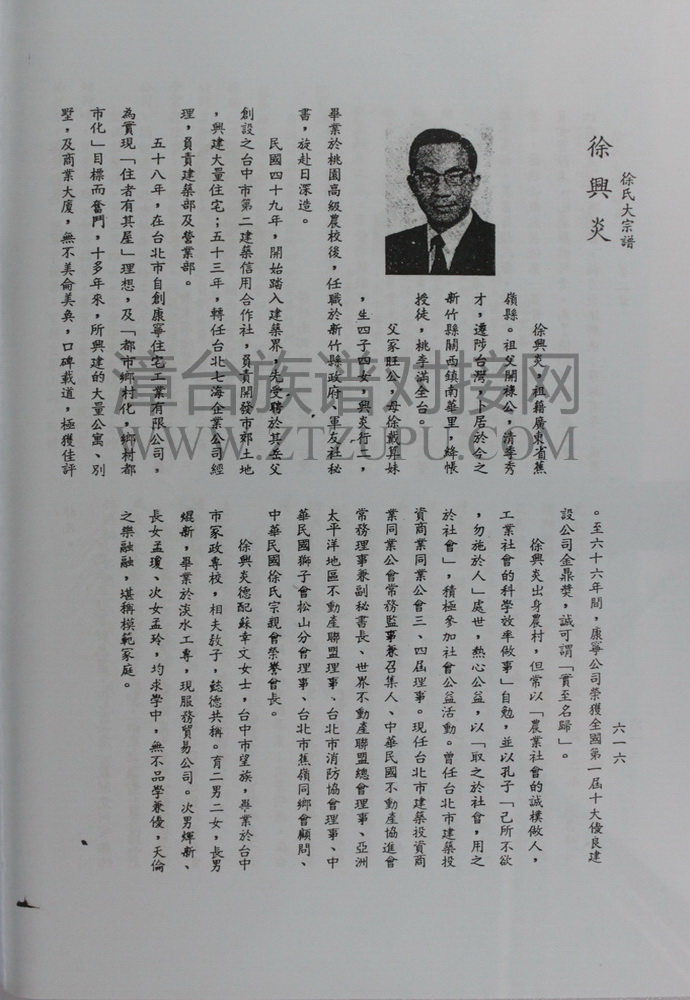 徐氏大宗譜
徐興炎
徐興炎，祖籍廣東省蕉
嶺縣。祖父開祿公，清季秀
才，遷陟台灣，卜居於今之
新竹縣關西鎮南華里，絳帳
授徒，桃李滿全台。
父家旺公，母徐戴茸妹
，生四子四女，興炎行二，
畢業於桃園高級農校後，任職於新竹縣政府、軍友社秘
書，旋赴日深造。
民國四十九年，開始踏入建築界，先受聘於其岳父
創設之台中市第二建築信用合作社，負責開發市郊土地
，興建大量住宅；五十三年，轉任台北七海企業公司經
理，負責建築部及營業部。
五十八年，在台北市自創康寧住宅工業有限公司，
為實現「住者有其屋」理想，及「都市鄉村化，鄉村都
市化」目標而奮鬥，十多年來，所興建的大量公寓、別
墅，及商業大廈，無不美侖美奐，口碑載道，極獲佳評
。至六十六年間，康寧公司榮獲全國第一屆十大優良建
設公司金鼎獎，誠可謂「實至名歸」。
徐興炎出身農村，但常以「農業社會的誠樸做人，
工業社會的科學效率做事」自勉，並以孔子「己所不欲
，勿施於人」處世，熱心公益，以「取之於社會，用之
於社會」，積極參加社會公益活動。曾任台北市建築投
資商業同業公會三、四屆理事。現任台北市建築投資商
業同業公會常務監事兼召集人、中華民國不動產協進會
常務理事兼副秘書長、世界不動產聯盟總會理事、亞洲
太平洋地區不動產聯盟理事、台北市消防協會理事、中
華民國獅子會松山分會理事、台北市蕉嶺同鄉會顧問、
中華民國徐氏宗親會榮譽會長。
徐興炎德配蘇幸文女士，台中市望族，畢業於台中
市家政專校，相夫敎子，懿德共稱。育二男二女，長男
焜新，畢業於淡水工專，現服務貿易公司。次男輝新、
長女孟瓊、次女孟玲，均求學中，無不品學兼優，天倫
之樂融融，堪稱模範家庭。
六一六
漳台族谱对接网
WWW.ZTZUPU.COM